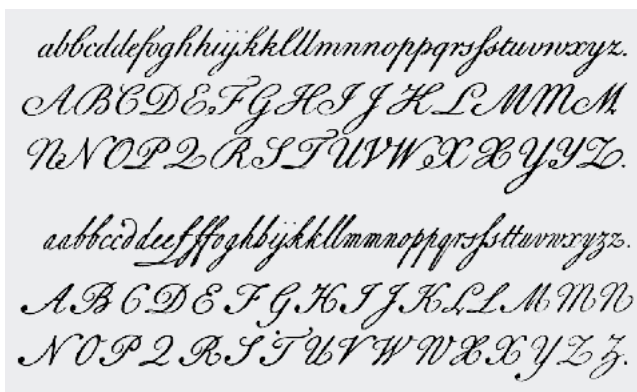 abbcddefoghhiijkklllmnnnoppqrsſstuvnwxyz.
ABCDEFGHIJKLMMM
NNOPQRSTUVWXXYYZ.
aabbccddeefffoghhijkkllmmnoppqrsſsttuvnwxyzz.
ABCDEFGHIJKLLMMN
NOPQRSTUVWWXXYZZ.